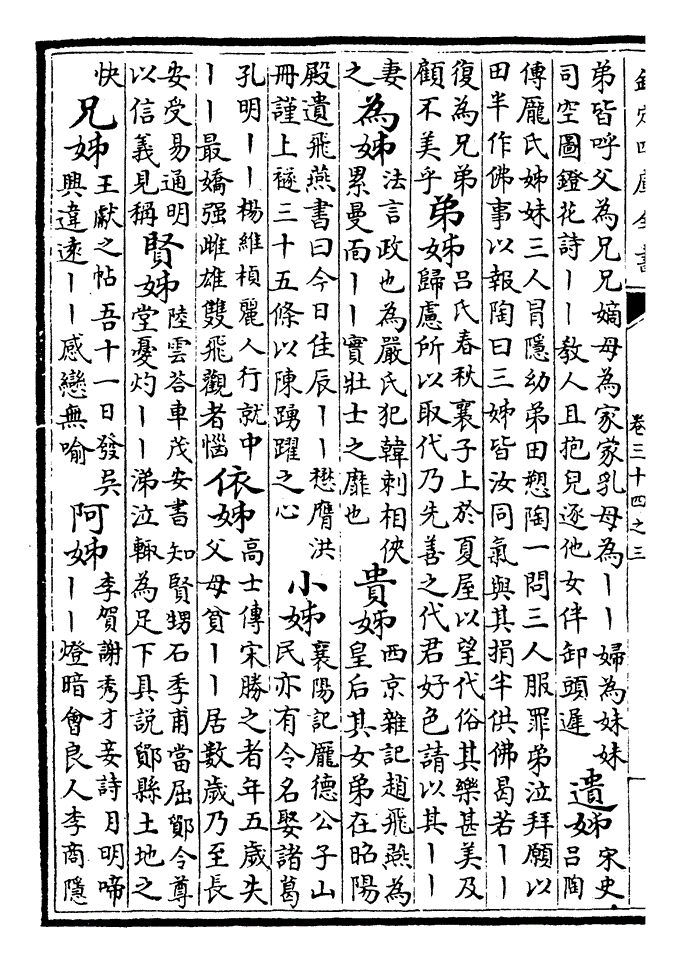 欽定四庫全書
卷三十四之三
弟皆呼父為兄兄嫡母為家家乳母為丨丨婦為妹妹
司空圖鐙花詩丨丨教人且抱兒逐他女伴卸頭遲
遺姊
宋史
呂陶
傳龐氏姊妹三人冒隱幼弟田愬陶一問三人服罪弟泣拜願以
田半作佛事以報陶曰三姊皆汝同氣與其捐半供佛曷若丨丨
復為兄弟
顧不美乎
弟姊
呂氏春秋襄子上於夏屋以望代俗其樂甚美及
歸慮所以取代乃先善之代君好色請以其丨丨
妻
之
為姊
法言政也為嚴氏犯韓刺相俠
累曼面丨丨實壯士之靡也
貴姊
西京雜記趙飛燕為
皇后其女弟在昭陽
殿遺飛燕書曰今日佳辰丨丨懋膺洪
冊謹上襚三十五條以陳踴躍之心
小姊
襄陽記龐德公子山
民亦有令名娶諸葛
孔明丨丨楊維楨麗人行就中
丨丨最嬌强雌雄雙飛觀者惱
依姊
高士傳宋勝之者年五歲失
父母貧丨丨居數歲乃至長
安受易通明
以信義見稱
賢姊
陸雲答車茂安書知賢甥石季甫當屈鄮令尊
堂憂灼丨丨涕泣輙為足下具説鄮縣土地之
快
兄姊
王獻之帖吾十一日發吳
興違遠丨丨感戀無喻
阿姊
李賀謝秀才妾詩月明啼
丨丨燈暗會良人李商隱